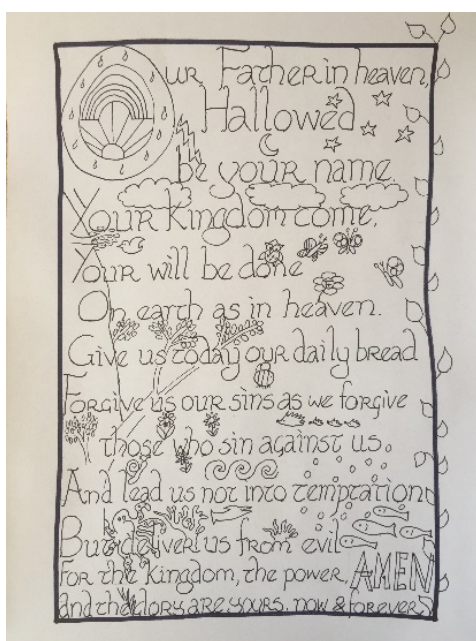 Our Father in heaven,
Hallowed
be your name.
Your Kingdom come,
Your will be done
On earth as in heaven.
Give us today our daily bread
Forgive us our sins as we forgive
those who sin against us.
And lead us not into temptation
But deliver us from evil
For the Kingdom, the power, AMEN
and the Glory are yours. now & forever